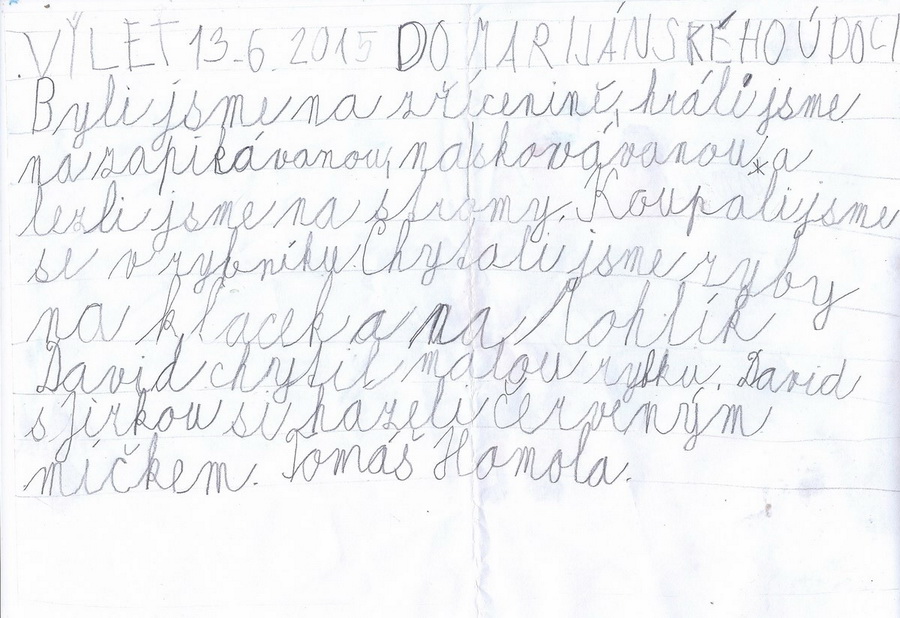 VÝLET 13.6. 2015 DO MARIJÁNSKÉHO ÚDOLÍ
Byli jsme na zřícenině, hráli jsme
na zapikávanou, na skovávanou a
lezli jsme na stromy. Koupali jsme
se v rybníku. Chytali jsme ryby
na klacek a na Rohlík
David chytil malou rybku. David
s jirkou si hazeli červeným
míčkem. Tomáš Homola.